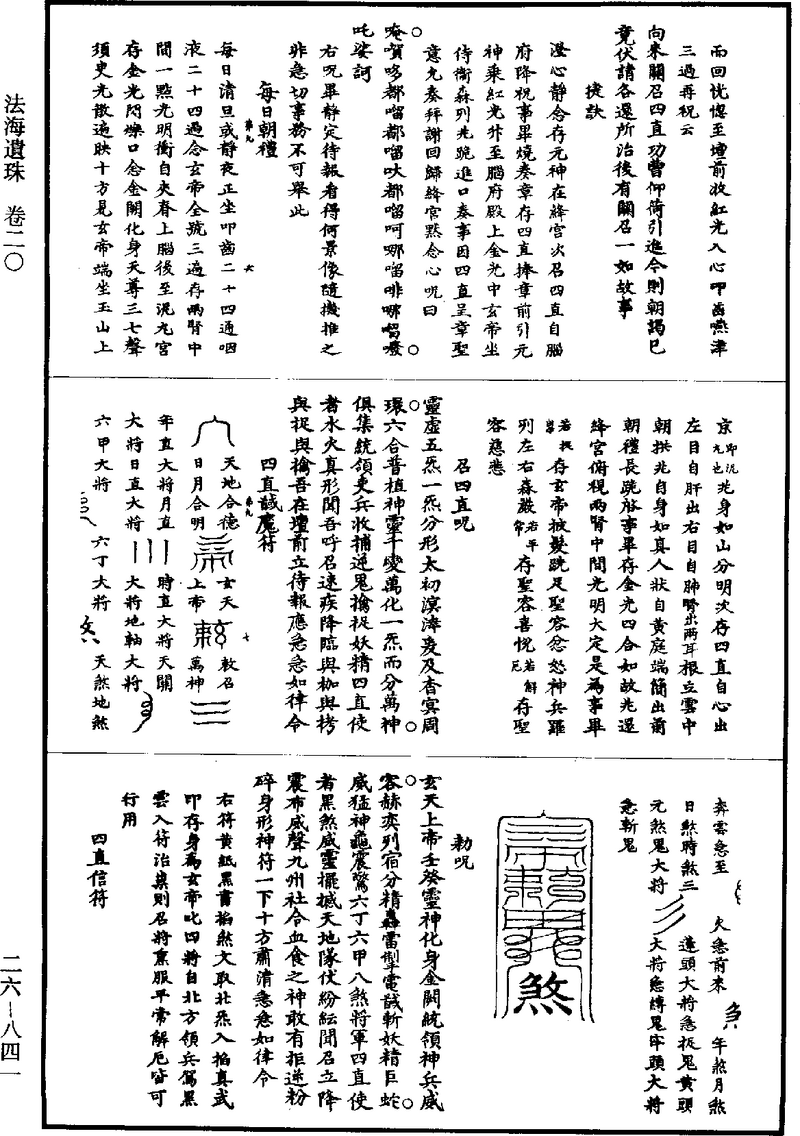 法海遺珠　卷二〇
二六－八四一
而回恍惚至壇前收紅光入心叩齒嚥津
三過再祝云
向來關召四直功曹仰荷引進今則朝謁已
竟伏請各還所治後有關召一如故事
捷訣
澄心靜念存元神在絳宮次召四直自腦
府降祝事畢燒奏章存四直捧章前引元
神乘紅光升至腦府殿上金光中玄帝坐
侍衛森列兆跪進口奏事因四直呈章聖
意允奏拜謝回歸絳宮黙念心呪曰
唵賀哆都嚠都嚠吠都嚠呵哪嚠啡哪嚠
吒娑訶
右呪畢靜定待報看得何景像隨機推之
非急切事務不可舉此
每日朝禮
每日清旦或靜夜正坐叩齒二十四通咽
液二十四過念玄帝全號三遍存兩腎中
間一點光明衝自夾脊上腦後至泥丸宮
存金光閃爍口念金闕化身天尊三七聲
須臾光散遍映十方見玄帝端坐玉山上
京即泥丸也兆身如山分明次存四直自心出
左目自肝出右目自肺腎出兩耳根立雲中
朝拱兆自身如真人狀自黄庭端簡出前
朝禮長跪啟事畢存金光四合如故兆還
絳宮俯視兩腎中間光明大定是為事畢
若投祟存玄帝披髮跣足聖容忿怒神兵羅
列左右森嚴若平常存聖容喜悅若解厄存聖
容慈悲
召四直呪
靈虛五炁一炁分形太初溟涬爰及杳冥周
環六合普植神靈千變萬化一炁而分萬神
俱集統領吏兵收捕逆鬼擒捉妖精四直使
者水火真形聞吾呼召速疾降臨與枷與栲
與捉與擒吾在壇前立待報應急急如律令
四直馘魔符
天地合德　玄天　敕召
日月合明　上帝　萬神
年直大將月直　時直大將天關
大將日直大將　大將地軸大將
六甲大將　六丁大將　天煞地煞
奔雲急至　火急前來　年煞月煞
日煞時煞三　蓬頭大將急捉鬼黄頭
元煞鬼大將　大將急縛鬼牢頭大將
急斬鬼
煞
勅呪
玄天上帝壬癸靈神化身金闕統領神兵威
容赫奕列宿分精轟雷掣電馘斬妖精巨蛇
威猛神龜震驚六丁六甲八煞將軍四直使
者黑煞威靈擺撼天地隊伏紛紜聞召立降
震布威聲九州社合血食之神敢有拒逆粉
碎身形神符一下十方肅清急急如律令
右符黄紙黑書掐煞文取北炁入掐真武
印存身為玄帝叱四將自北方領兵駕黑
雲入符治祟則召將熏服平常解厄皆可
行用
四直信符